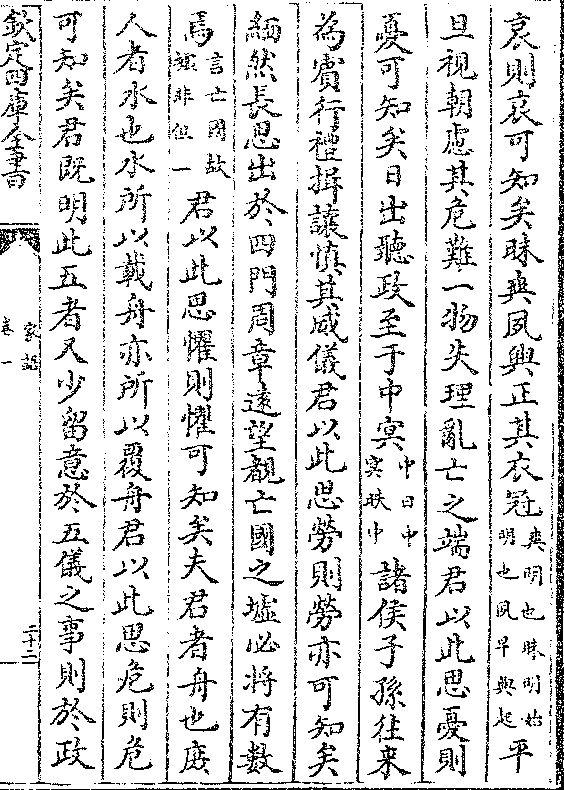 哀則哀可知矣昧爽夙興正其衣冠爽明也昧明始明也夙早興起平
旦視朝慮其危難一物失理亂亡之端君以此思憂則
憂可知矣日出聽政至于中冥中日中冥昳中諸侯子孫往来
為賔行禮揖讓慎其威儀君以此思勞則勞亦可知矣
緬然長思出於四門周章逺望覩亡國之墟必将有數
焉言亡國故墟非但一君以此思懼則懼可知矣夫君者舟也庶
人者水也水所以載舟亦所以覆舟君以此思危則危
可知矣君既明此五者又少留意於五儀之事則於政
欽定四庫全書
家語
卷一
二十二